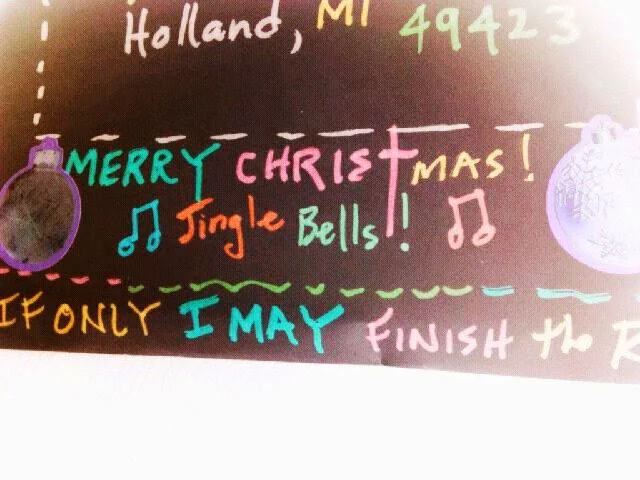 Holland, MI 49423
MERRY CHRISTMAS!
Jingle Bells!
IF ONLY I MAY FINISH the R